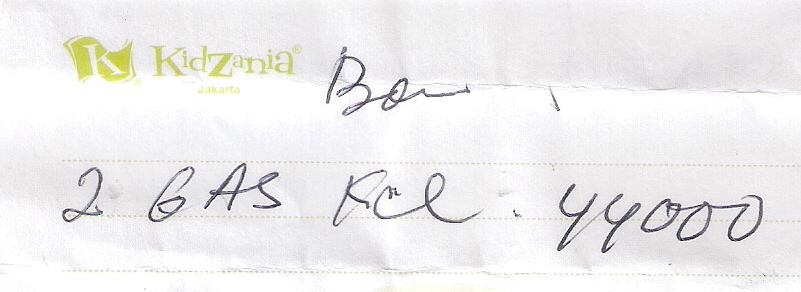 KidZania®
Jakarta
Bon
2 GAS Kcl. 44000